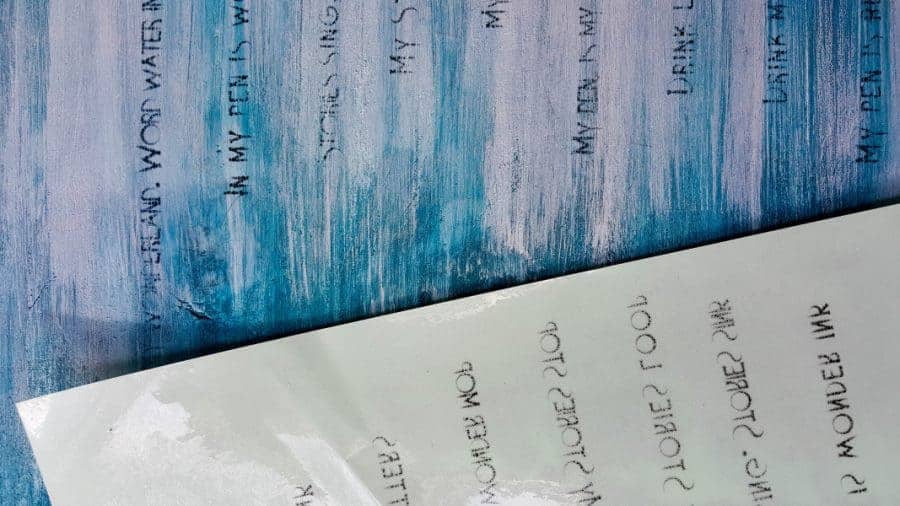 WORD WATER IN
IN MY PEN IS WO
STORIES SING.
MY ST
MY
MY PEN IS MY
DRINK L
DRINK M
MY PEN IS
NK
TTERS
WONDER MOP
MY STORIES STOP
STORIES LOOP
ING. STORIES SINK
IS WONDER INK